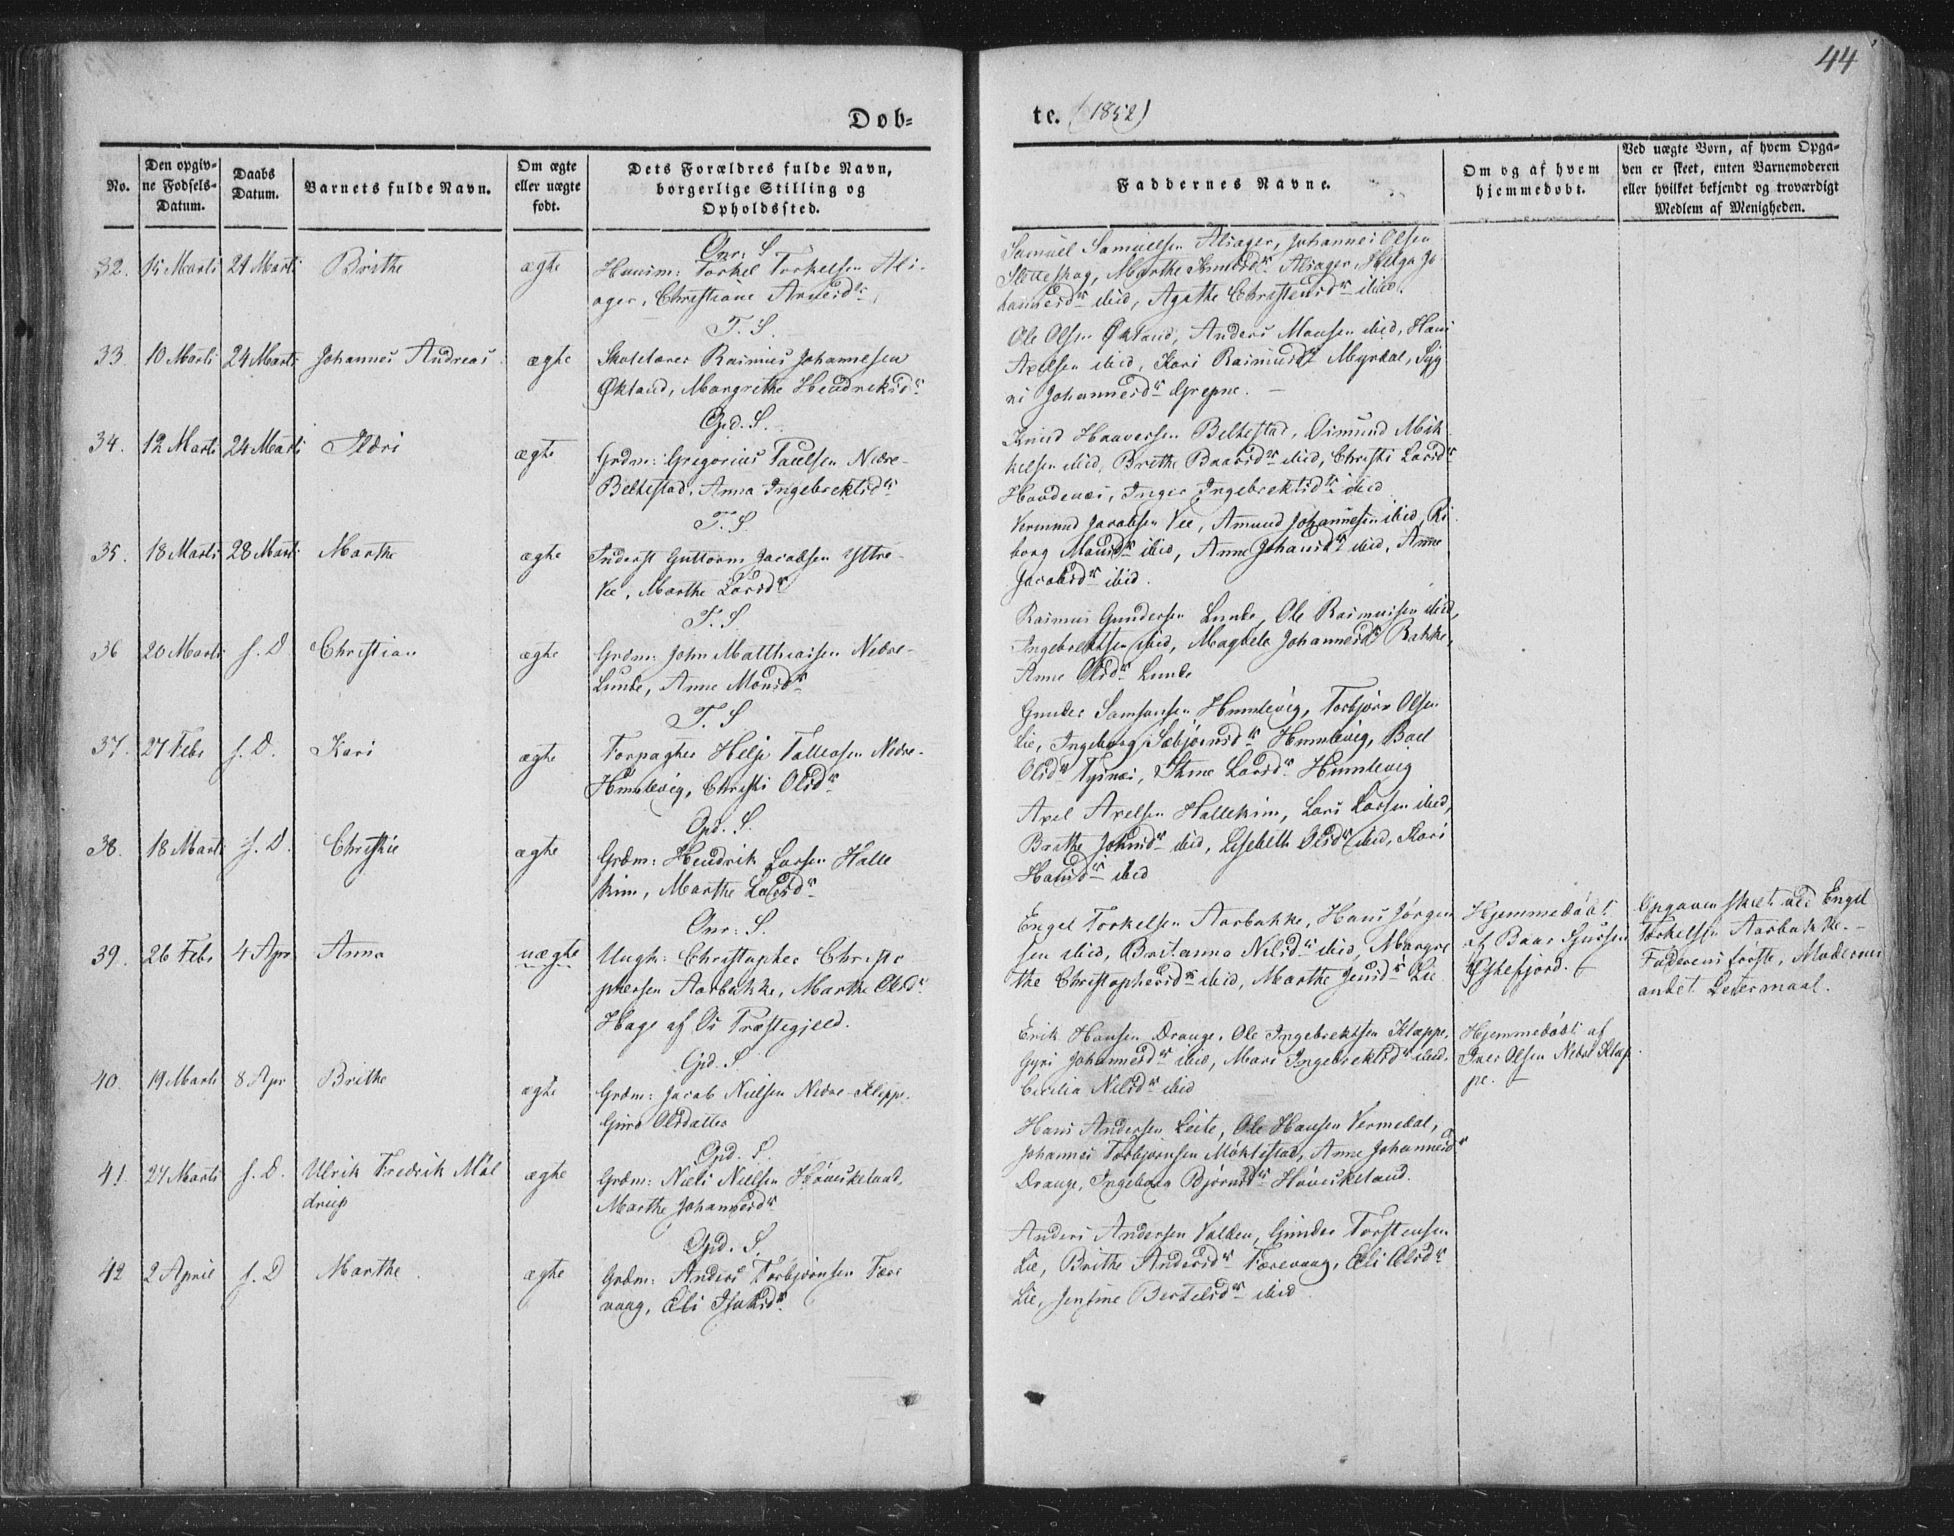 44
Døb-
te. (1852)
No.
Den opgiv-
ne Fødsels-
Datum.
Daabs
Datum.
Barnets fulde Navn.
Om ægte
eller uægte
født.
Dets Forældres fulde Navn,
borgerlige Stilling og
Opholdssted.
Faddernes Navne.
Om og af hvem
hjemmedøbt.
Ved uægte Børn, af hvem Opga-
ven er skeet, enten Barnemoderen
eller hvilket bekjendt og troværdigt
Medlem af Menigheden.
32. 15 Marti 24 Marti Brithe ægte
Onr: S
Huusm: Torkel Torkelsen Ali-
ager, Christiane Arnesdr
Samuel Samuelsen Aliager, Johannes Olsen
Sletteskog, Marthe Aliager, Helga Jo
hannesdr ibid, Agathe Christensdr ibid.
33. 10 Marti 24 Marti Johannes Andreas ægte
T. S.
Skolelærer Rasmus Johannesen
Økland, Margrethe Hendriksdr
Ole Olsen Økland, Anders Monsen ibid, Hans
Axelsen ibid, Kari Rasmusdr Myrdal, Syg
ni Johannesdr Grepne.
34. 12 Marti 24 Marti ægte
Opd. S.
Grdm: Gregorius Paulsen Nedre-
Bekkestad, Anna Ingebrektsdr
Knud Haaversen Bekkestad, Osmund Mik
kelsen ibid, Brithe Baarsdr ibid, Christi Larsdr
Inger Ingebrektsdr ibid
35. 18 Marti 28 Marti Marthe ægte
T. S
Inderst Guttorm Jacobsen Yttre-
Vee, Marthe Larsdr
Vermund Jacobsen Vee, Amund Johannesen ibid, Ri
borg Monsdr ibid, Anne Johansdr ibid, Anne
Jacobsdr ibid.
36 20 Marti s. D Christian ægte
T. S
Grdm: John Matthiasen Nedre-
Lunde, Anne Monsdr
Rasmus Gundersen Lunde, Ole Rasmussen ibid,
Ingebrektsen ibid, Magdele Johannesdr Bakke,
Anne Olsdr Lunde
37. 27 Febr s. D. Kari ægte
T. S
Forpagter Helje Tolleosen Nedre-
Humlevig, Christi Olsdr
Gunder Samsonsen Humlevig, Torbjørn Olsen
Lie, Ingeborg Sæbjørnsdr Humlevig, Boel
Olsdr Tysnæs, Stine Larsdr Humlevig
38. 18 Marti s. D. Christie ægte
Opd. S.
Grdm: Hendrik Larsen Halle
kim, Marthe Larsdr
Axel Axelsen Hallekim, Lars Larsen ibid,
Brithe Johnsdr ibid, Lisebeth Olsdr ibid, Kari
Hansdr ibid
39. 26 Febr 4 Apr Anna uægte
Onr: S.
Ungk: Christopher Christo
phersen Aarbakke, Marthe Olsdr
Hage af Os Præstegjeld.
Engel Torkelsen Aarbakke, Hans Jørgen
sen ibid, Britanna Nilsdr ibid, Margre
the Christophersdr ibid, Marthe Jensdr Lie
Hjemmedøbt
af Baar Sjursen
Eghefjord.
Opgaven skeet ved Engel
Torkelsen Aarbakke. -
Faderens første, Moderens
andet Leiermaal.
40. 19 Marti 8 Apr Brithe ægte
Opd. S
Grdm: Jacob Nielsen Nedre-Kleppe,
Guro Olsdatter
Erik Hansen Drange, Ole Ingebrektsen Kleppe,
Gyri Johannesdr ibid, Mari Ingebrektsdr ibid,
Cecilia Nilsdr ibid
Hjemmedøbt af
Iver Olsen Nedre Klep
pe.
41. 27 Marti s. D. Ulrik Fredrik Møl
drup ægte
Opd. S
Grdm: Niels Nielsen Høviskeland,
Marthe Johannesdr
Hans Andersen Leite, Ole Hansen Vermedal,
Johannes Torbjørnsen Møklestad, Anne Johannesdr
Drange, Ingeborg Bjørnsdr Høviskeland.
42 2 April s. D Marthe ægte
Opd. S.
Grdm: Anders Torbjørnsen Fære
vaag, Eli Isaksdr
Anders Andersen Valden, Gunder Torstensen
Lie, Brithe Andersdr Færevaag, Eli Olsdr
Lie, Jensine Bertelsdr ibid